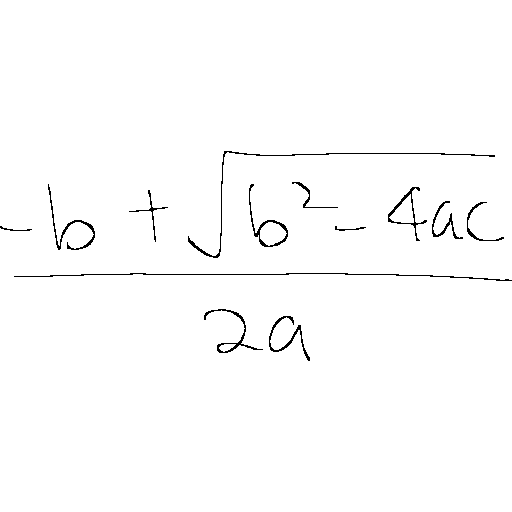 \frac{-b + \sqrt{b^2 - 4ac}}{2a}